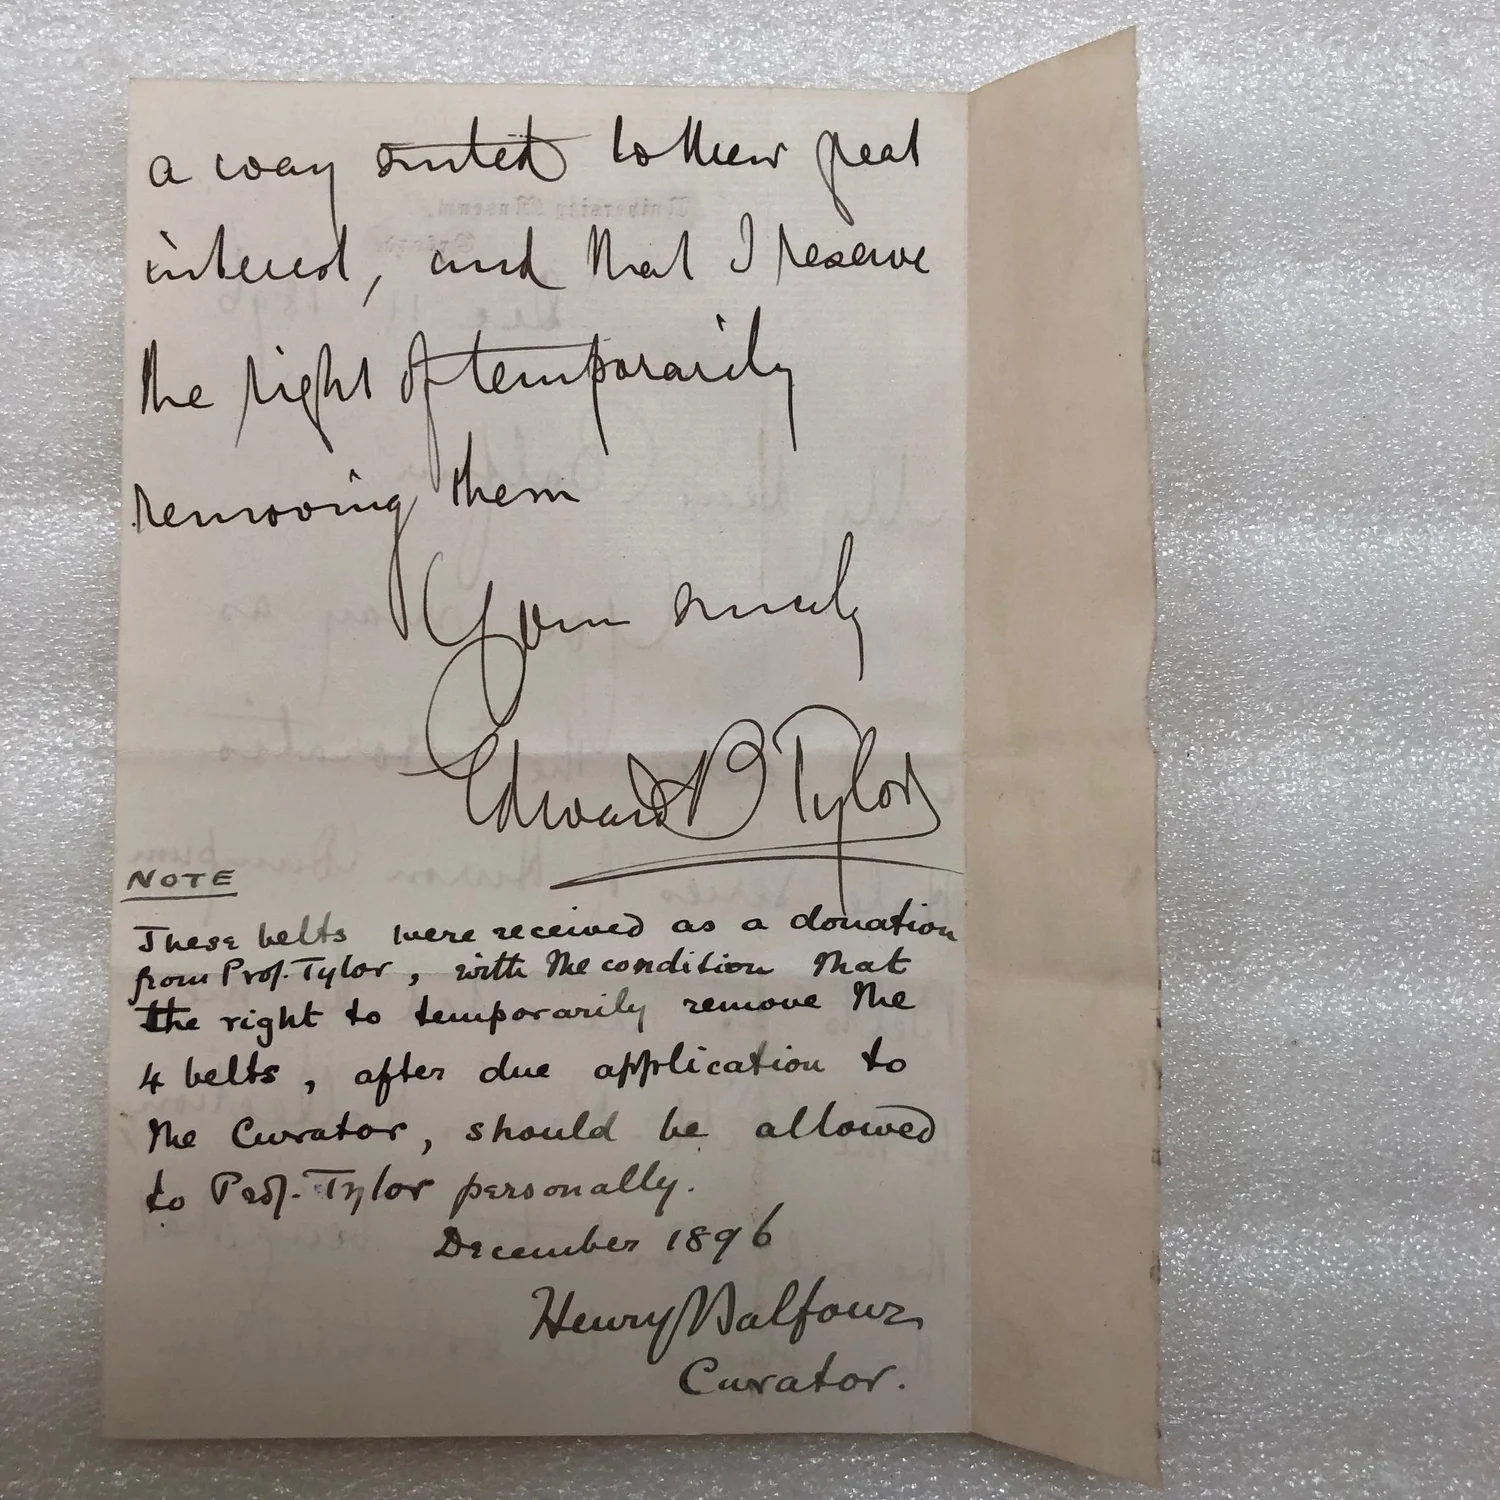 a way suited to their great
interest, and that I reserve
the right of temporarily
removing them
Yours sincerely
Edward B Tylor
NOTE
These belts were received as a donation
from Prof. Tylor, with the condition that
the right to temporarily remove the
4 belts, after due application to
the Curator, should be allowed
to Prof. Tylor personally.
December 1896
Henry Balfour
Curator.